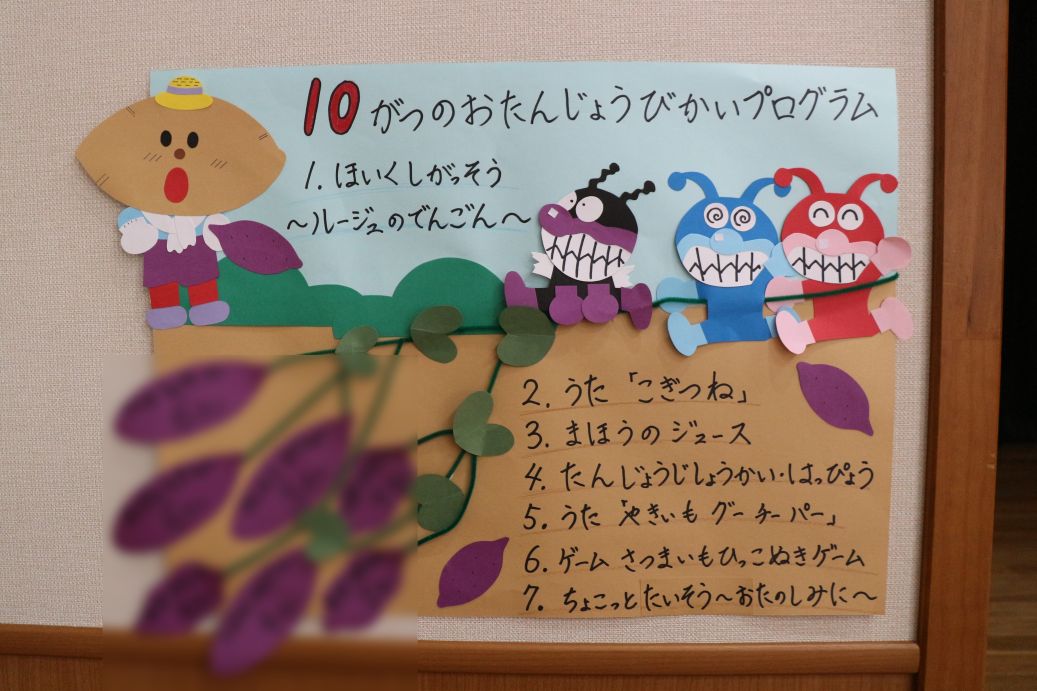 10がつのおたんじょうびかいプログラム
1. ほいくしがっそう
～ルージュのでんごん～
2. うた「こぎつね」
3. まほうのジュース
4. たんじょうじしょうかい・はっぴょう
5. うた「やきいも グーチーパー」
6. ゲーム さつまいもひっこぬきゲーム
7. ちょこっとたいそう～おたのしみに～